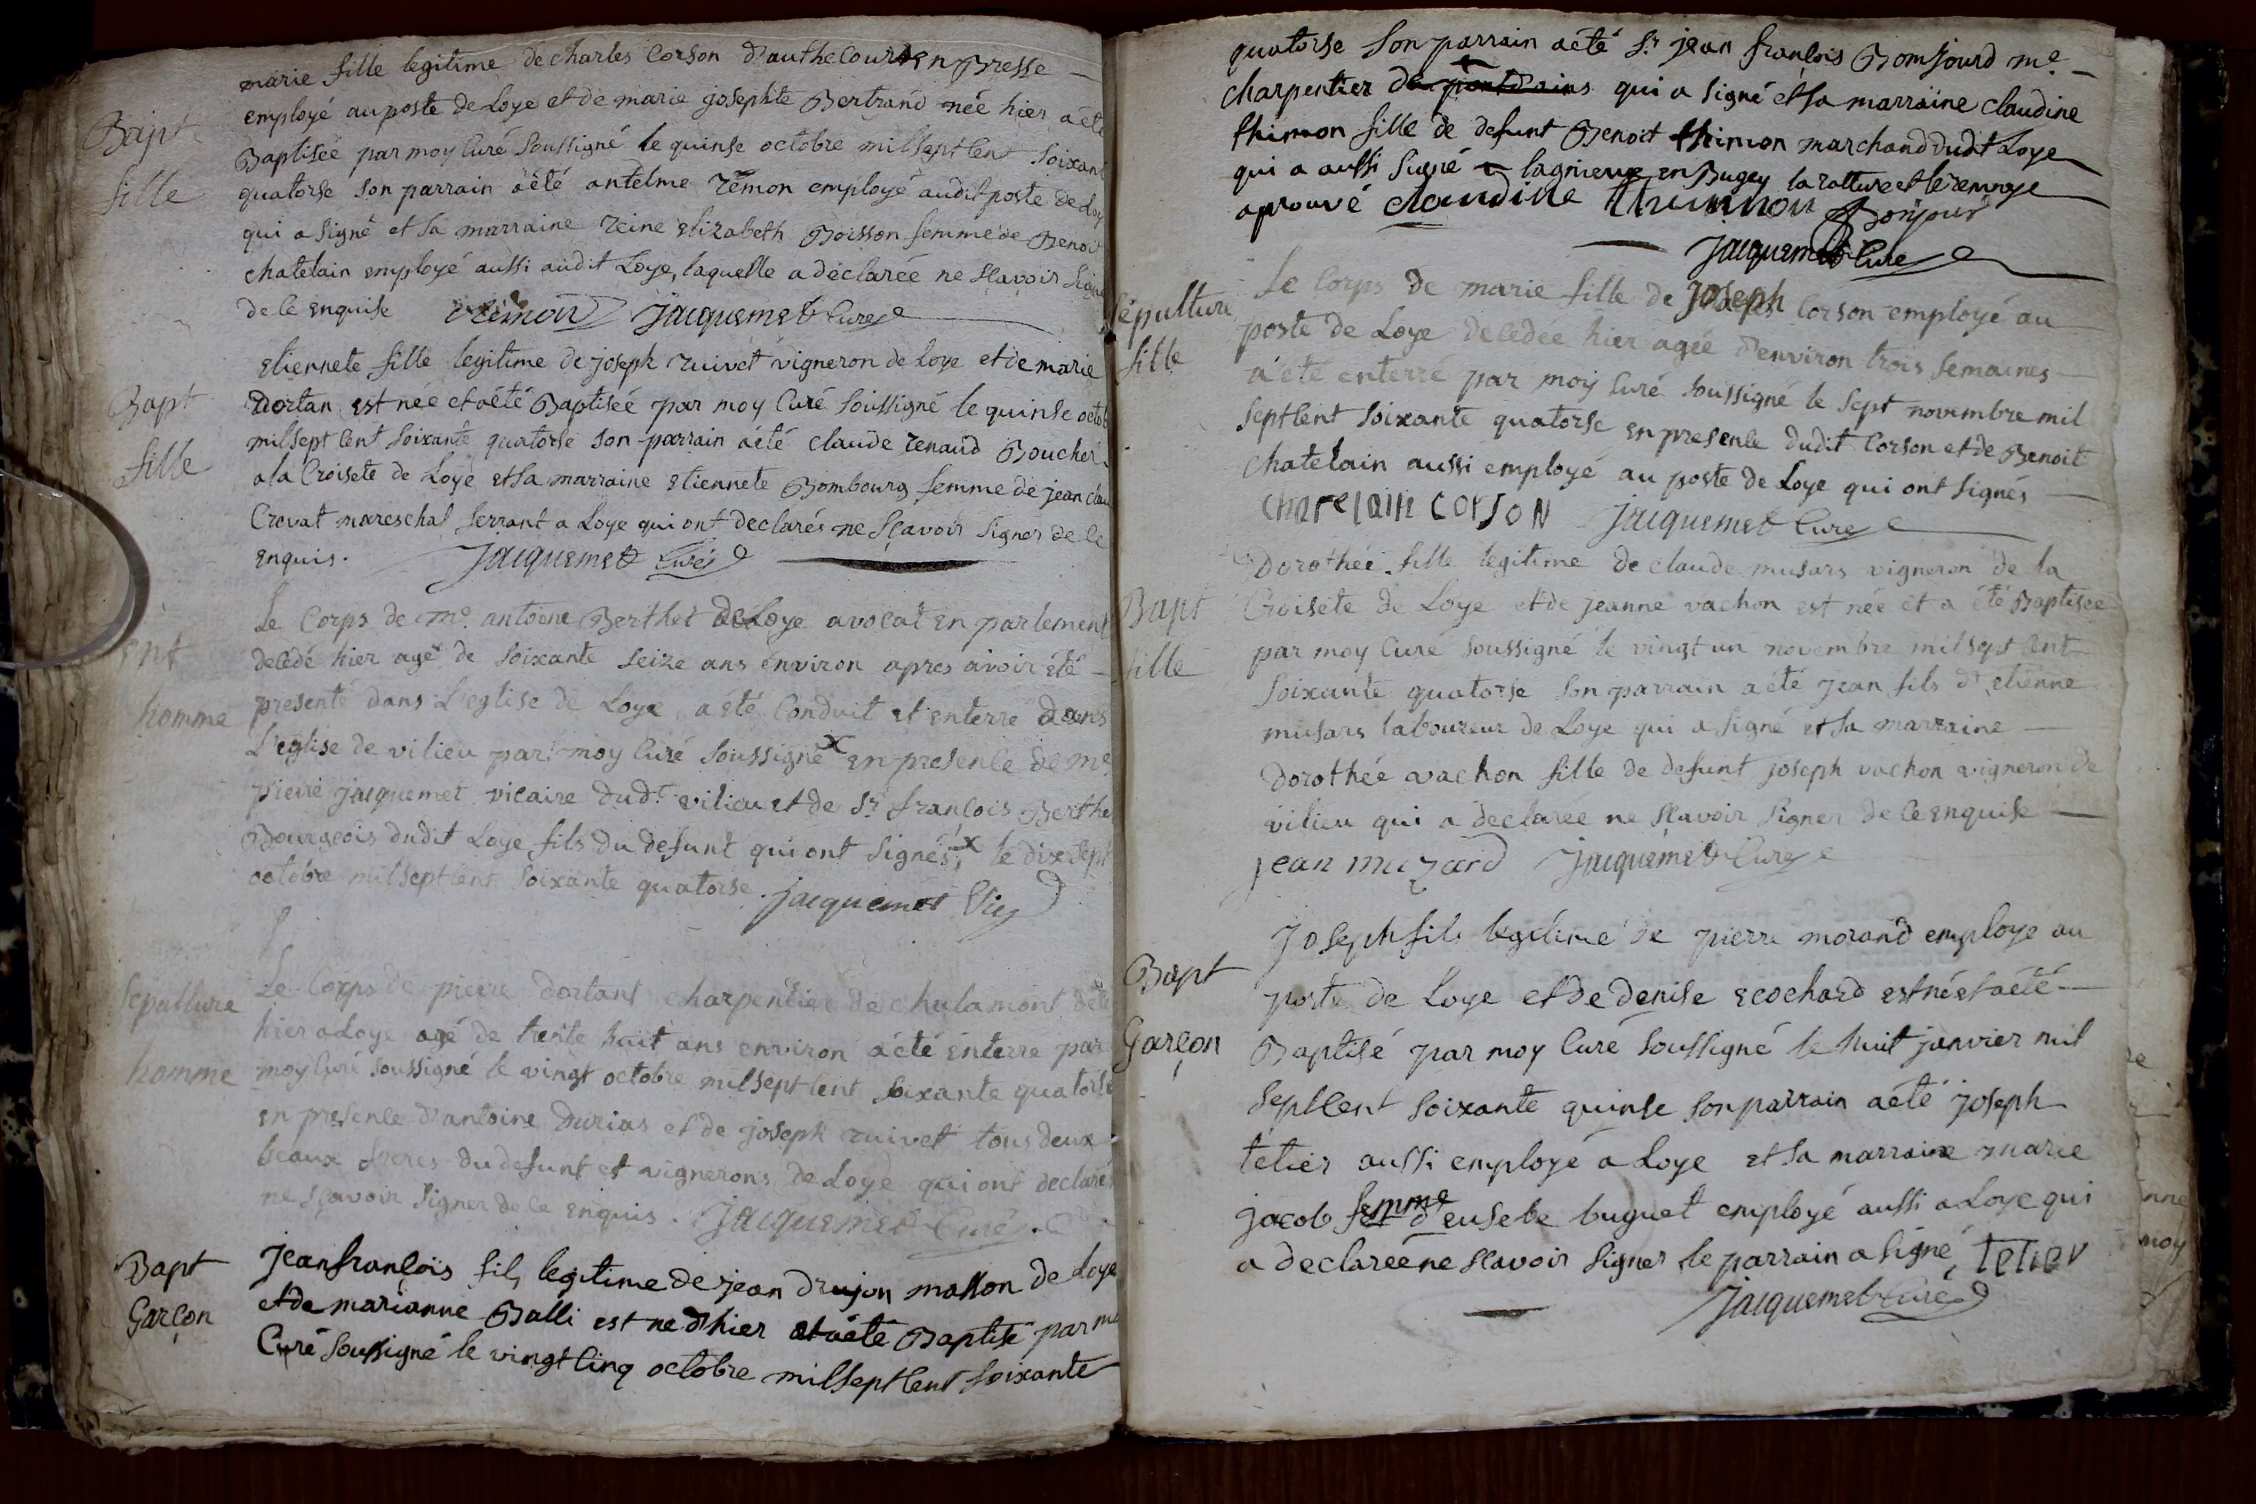 marie fille legitime de charles Corson d'authecour en Bresse
Bapt
employé au poste de Loye et de marie josephte Bertrand née hier a été
Baptisée par moy Curé soussigné le quinse octobre mil sept cent soixant
fille
quatorse son parrain a été antelme rémon employé audit poste de Loy
qui a signé et sa marraine reine elizabeth Boisson femme de Benoit
chatelain employé aussi audit Loye, laquelle a declarée ne sçavoir signe
de ce enquise rémon Jacquemet Curé
etiennete fille legitime de joseph ruivet vigneron de loye et de marie
Bapt
Dortan est née et a été Baptisée par moy Curé soussigné le quinse octob
mil sept cent soixante quatorse son parrain a été claude renaud Boucher
fille
a la Croisete de Loye et sa marraine etiennete Bombourg femme de jean clau
Crevat mareschal ferrant a Loye qui ont declarés ne sçavoir signer de ce
enquis. Jacquemet Curé
Le Corps de me. antoine Berthet de Loye avocat en parlement
ent
decedé hier agé de soixante seize ans environ apres avoir été
homme
presenté dans L'eglise de Loye a été Conduit et enterré dans
L'eglise de vilieu par moy Curé soussigné x en presence de me.
pierre jacquemet vicaire dudt vilieu et de sr françois Berthe
Bourgeois dudit Loye fils du defunt qui ont signés x le dix sept
octobre mil sept cent soixante quatorse. jacquemet Vic
Sepulture
Le Corps de pierre dortant charpentier de chalamont
hier a Loye agé de trente huit ans environ a été enterré par
homme
moy Curé soussigné le vingt octobre mil sept cent soixante quatorse
en presence d'antoine Durias et de joseph ruivet tous deux
beaux freres du defunt et vignerons de Loye qui ont declarés
ne sçavoir signer de ce enquis. Jacquemet Curé
Bapt
jean françois fils legitime de jean Drujon masson de Loye
Garçon
et de marianne Balli est ne d'hier et a été Baptisé par
Curé soussigné le vingt cinq octobre mil sept cent soixante
quatorse son parrain a été sr jean françois Bomjourd me.
charpentier de pont d'ains qui a signé et sa marraine claudine
thimon fille de defunt Benoit thimon marchand dudit Loye
qui a aussi signé lagnieux en Bugey la ratture et le renvoye
aprouvé claudine Bonjour
Jacquemet Curé
Sepulture
Le Corps de marie fille de joseph Corson employé au
fille
poste de Loye decedée hier agée d'environ trois semaines
a été enterré par moy Curé soussigné le sept novembre mil
sept cent soixante quatorse en presence dudit Corson et de Benoit
chatelain aussi employé au poste de Loye qui ont signés
chatelain CORSON Jacquemet Curé
Dorothée fille legitime de claude musars vigneron de la
Bapt
Croisete de Loye et de jeanne vachon est née et a été Baptisée
fille
par moy Curé soussigné le vingt un novembre mil sept cent
soixante quatorse son parrain a été jean fils d'etienne
musars laboureur de Loye qui a signé et sa marraine
dorothée vachon fille de defunt joseph vachon vigneron de
vilieu qui a declaree ne sçavoir signer de ce enquise
jean muzard Jacquemet Curé
joseph fils legitime de pierre morand employe au
Bapt
poste de Loye et de denise ecochard est né et a été
Garçon
Baptisé par moy Curé soussigné le huit janvier mil
sept cent soixante quinse son parrain a été joseph
tetier aussi employé a Loye et sa marraine marie
jacob femme d'eusebe buguet employé aussi a Loye qui
a declarée ne sçavoir signer le parrain a signé, tetier
Jacquemet Curé